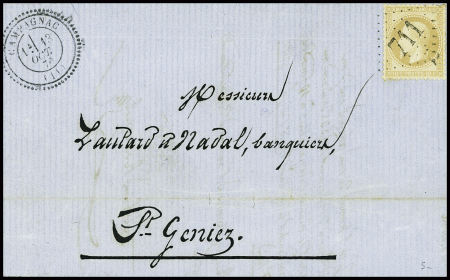 CAMPAGNAC
18
OCT.
(11)
711
Messieurs
Laulard & Nadal, banquiers,
St. Geniez.
5-